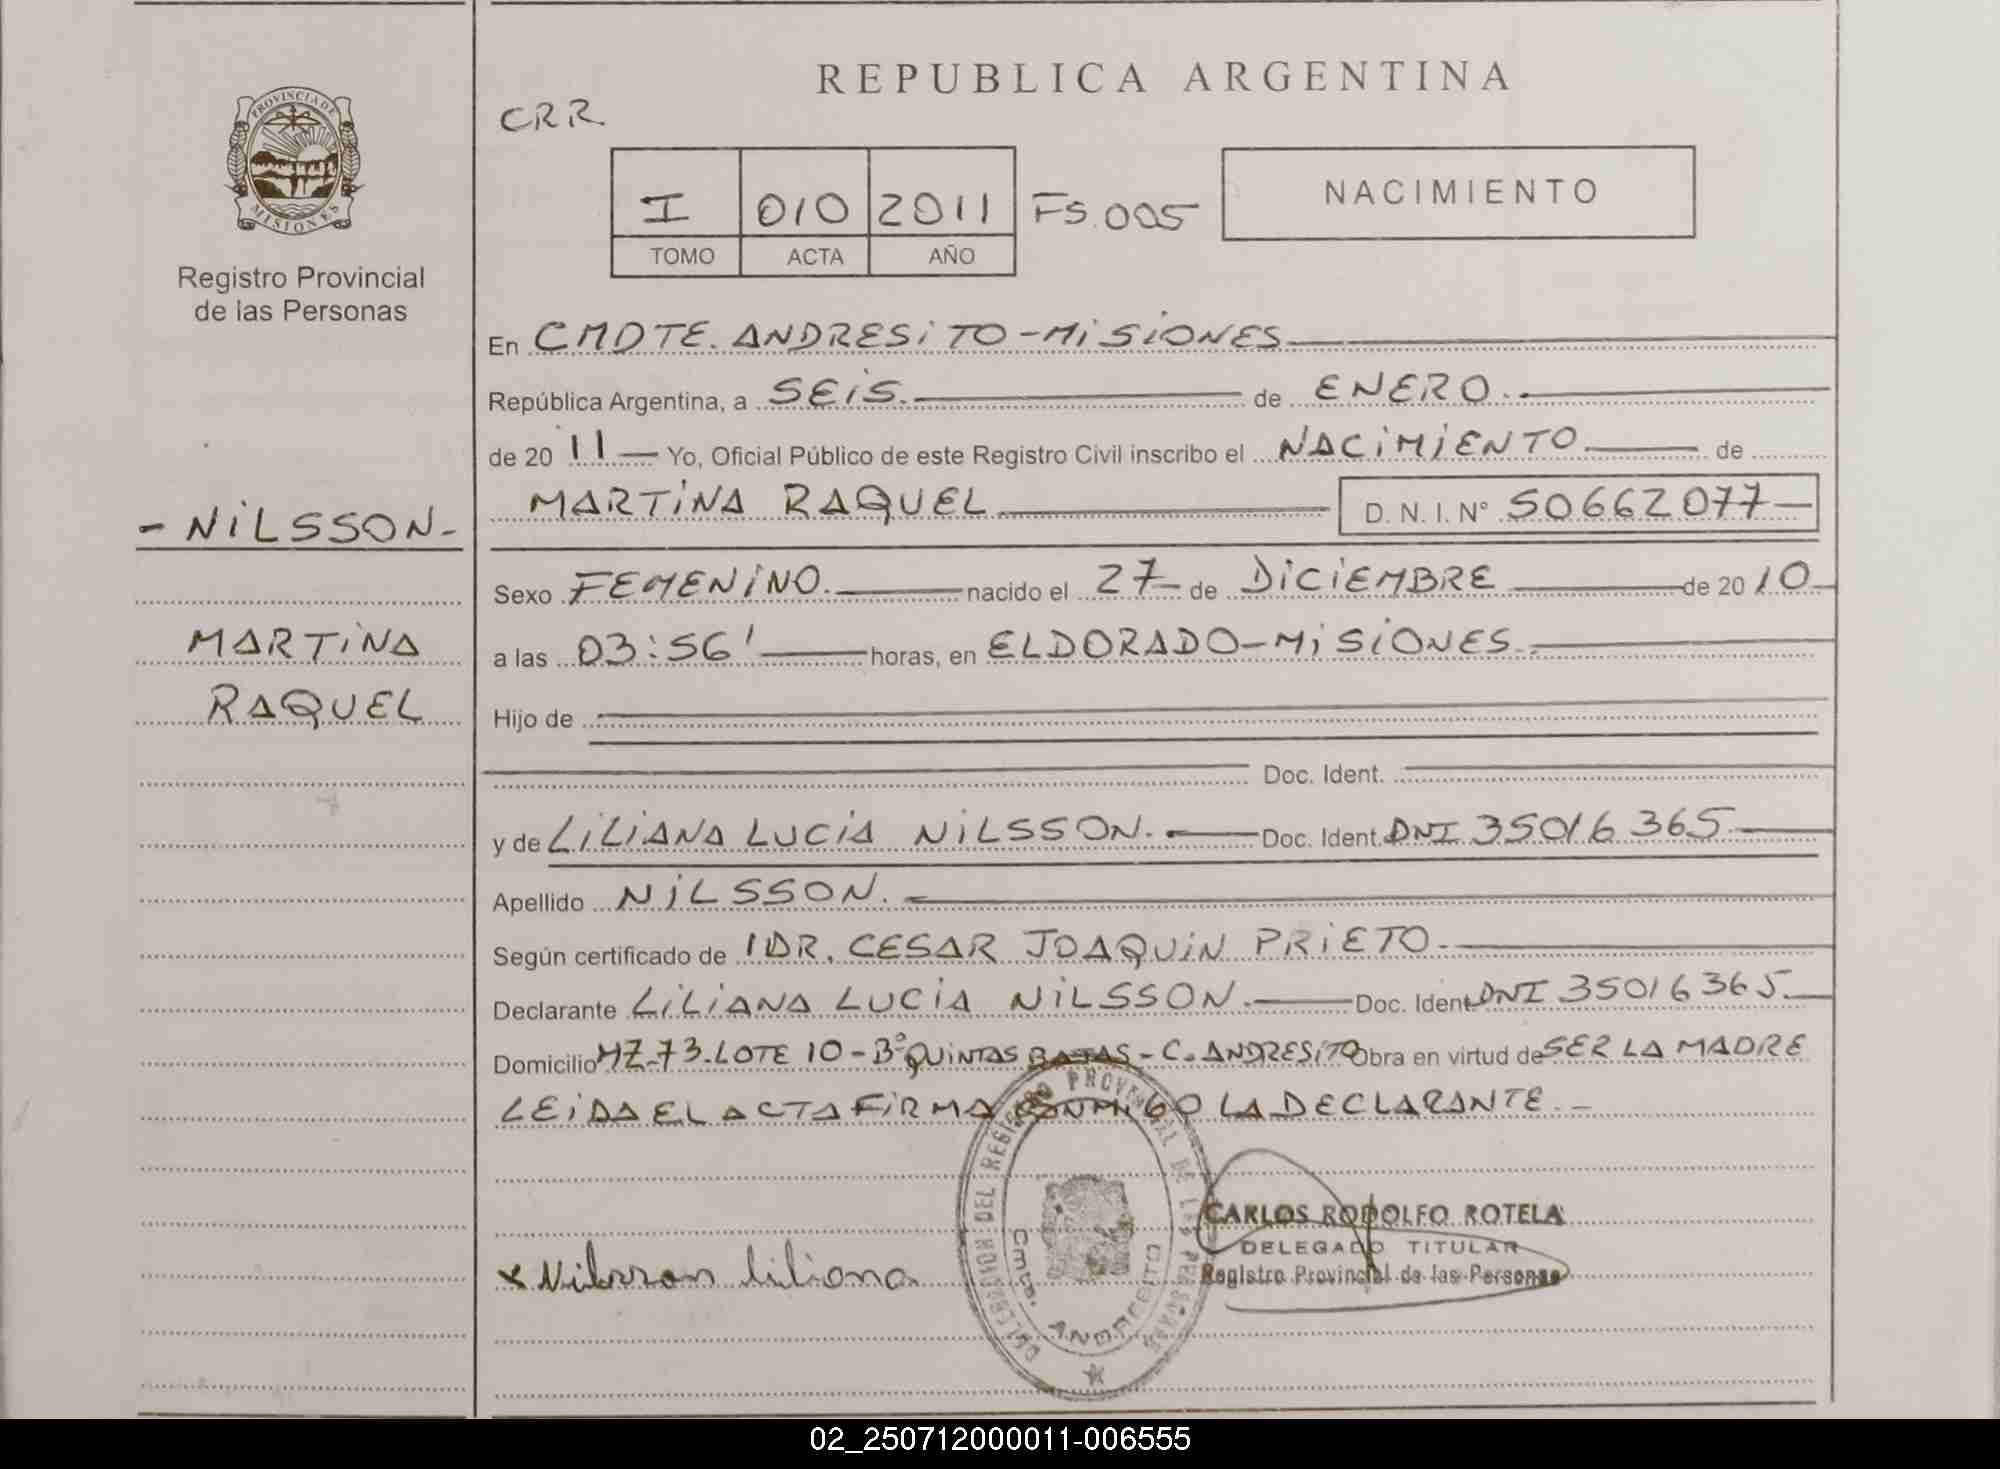 REPUBLICA ARGENTINA
CRR
PROVINCIA DE MISIONES
I 010 2011 FS.005
TOMO ACTA AÑO
NACIMIENTO
Registro Provincial
de las Personas
En CMDTE. ANDRESITO-MISIONES
República Argentina, a SEIS. de ENERO.
de 2011 Yo, Oficial Público de este Registro Civil inscribo el NACIMIENTO de
MARTINA RAQUEL D. N. I. N° 50662077
- NILSSON -
MARTINA
RAQUEL
Sexo FEMENINO. nacido el 27 de DICIEMBRE de 2010
a las 03:56' horas, en ELDORADO-MISIONES.
Hijo de
Doc. Ident.
y de LILIANA LUCIA NILSSON. Doc. Ident. DNI 35016365
Apellido NILSSON.
Según certificado de DR. CESAR JOAQUIN PRIETO.
Declarante LILIANA LUCIA NILSSON. Doc. Ident DNI 35016365
Domicilio MZ-73-LOTE 10-B° QUINTAS BAJAS-C. ANDRESITO Obra en virtud de SER LA MADRE
LEIDA EL ACTA FIRMA CONMIGO LA DECLARANTE.-
DELEGACION DEL REGISTRO PROVINCIAL DE LAS PERSONAS
Cmte. ANDRESITO
CARLOS RODOLFO ROTELA
DELEGADO TITULAR
Registro Provincial de las Personas
x Nilsson Liliana
02_250712000011-006555